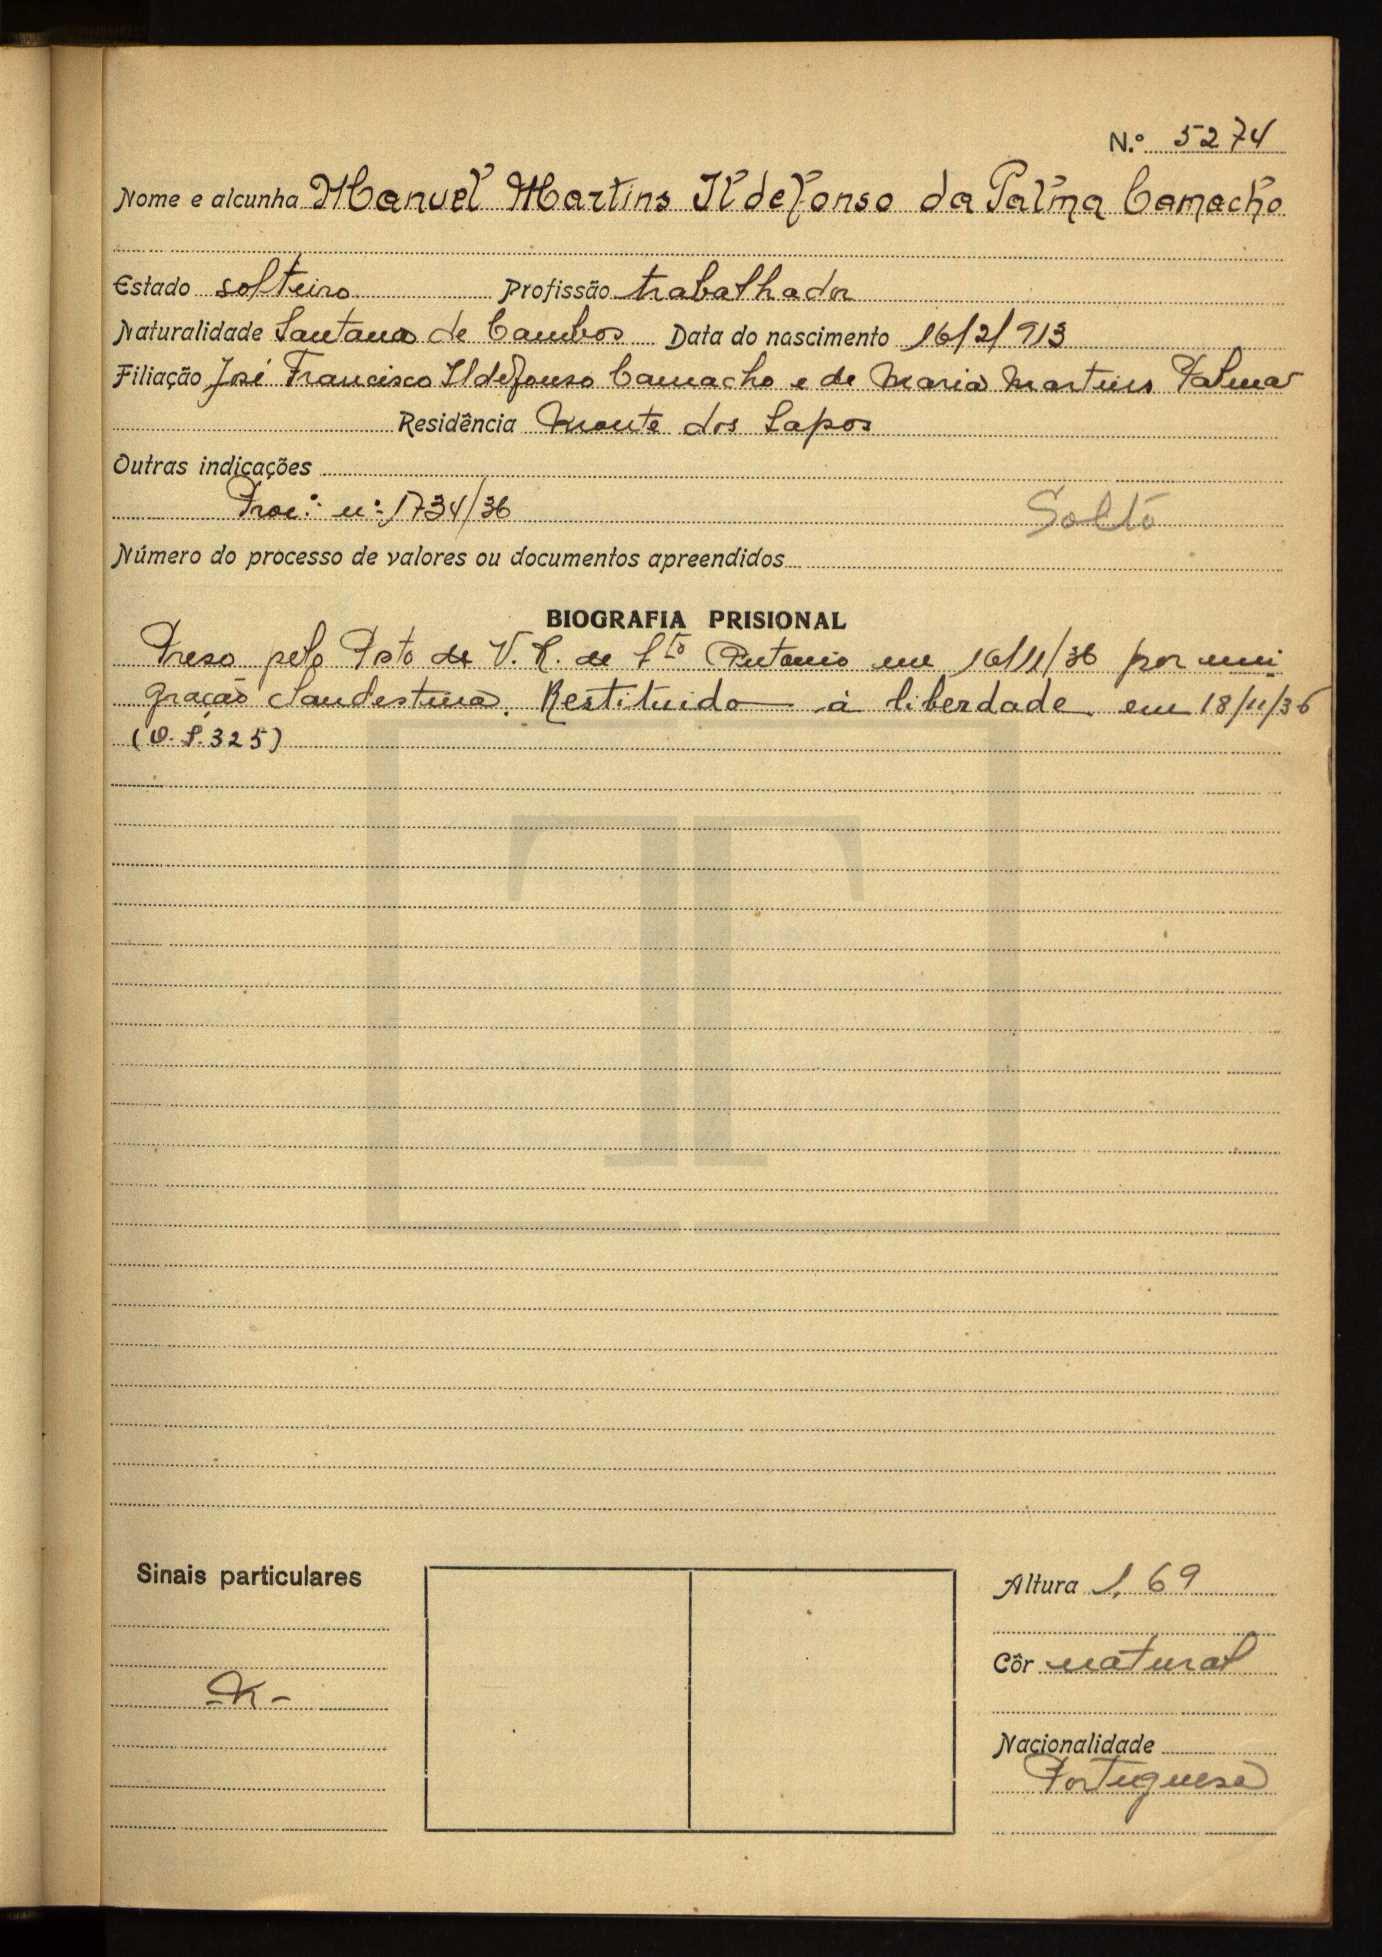 N.º 5274
Nome e alcunha Manuel Martins Ildefonso da Palma Camacho
Estado solteiro Profissão trabalhador
Naturalidade Santana de Cambos Data do nascimento 16/2/913
Filiação José Francisco Ildefonso Camacho e de Maria Martins Palma
Residência Monte dos Sapos
Outras indicações
Proc.º nº 1734/36 Solto
Número do processo de valores ou documentos apreendidos
BIOGRAFIA PRISIONAL
Preso pelo Psto de V. R. de Sto Antonio em 16/11/36 por emi
gração clandestina. Restituido á liberdade em 18/11/36
(O. S. 325)
Sinais particulares
Altura 1,69
Côr natural
Nacionalidade
Portuguesa